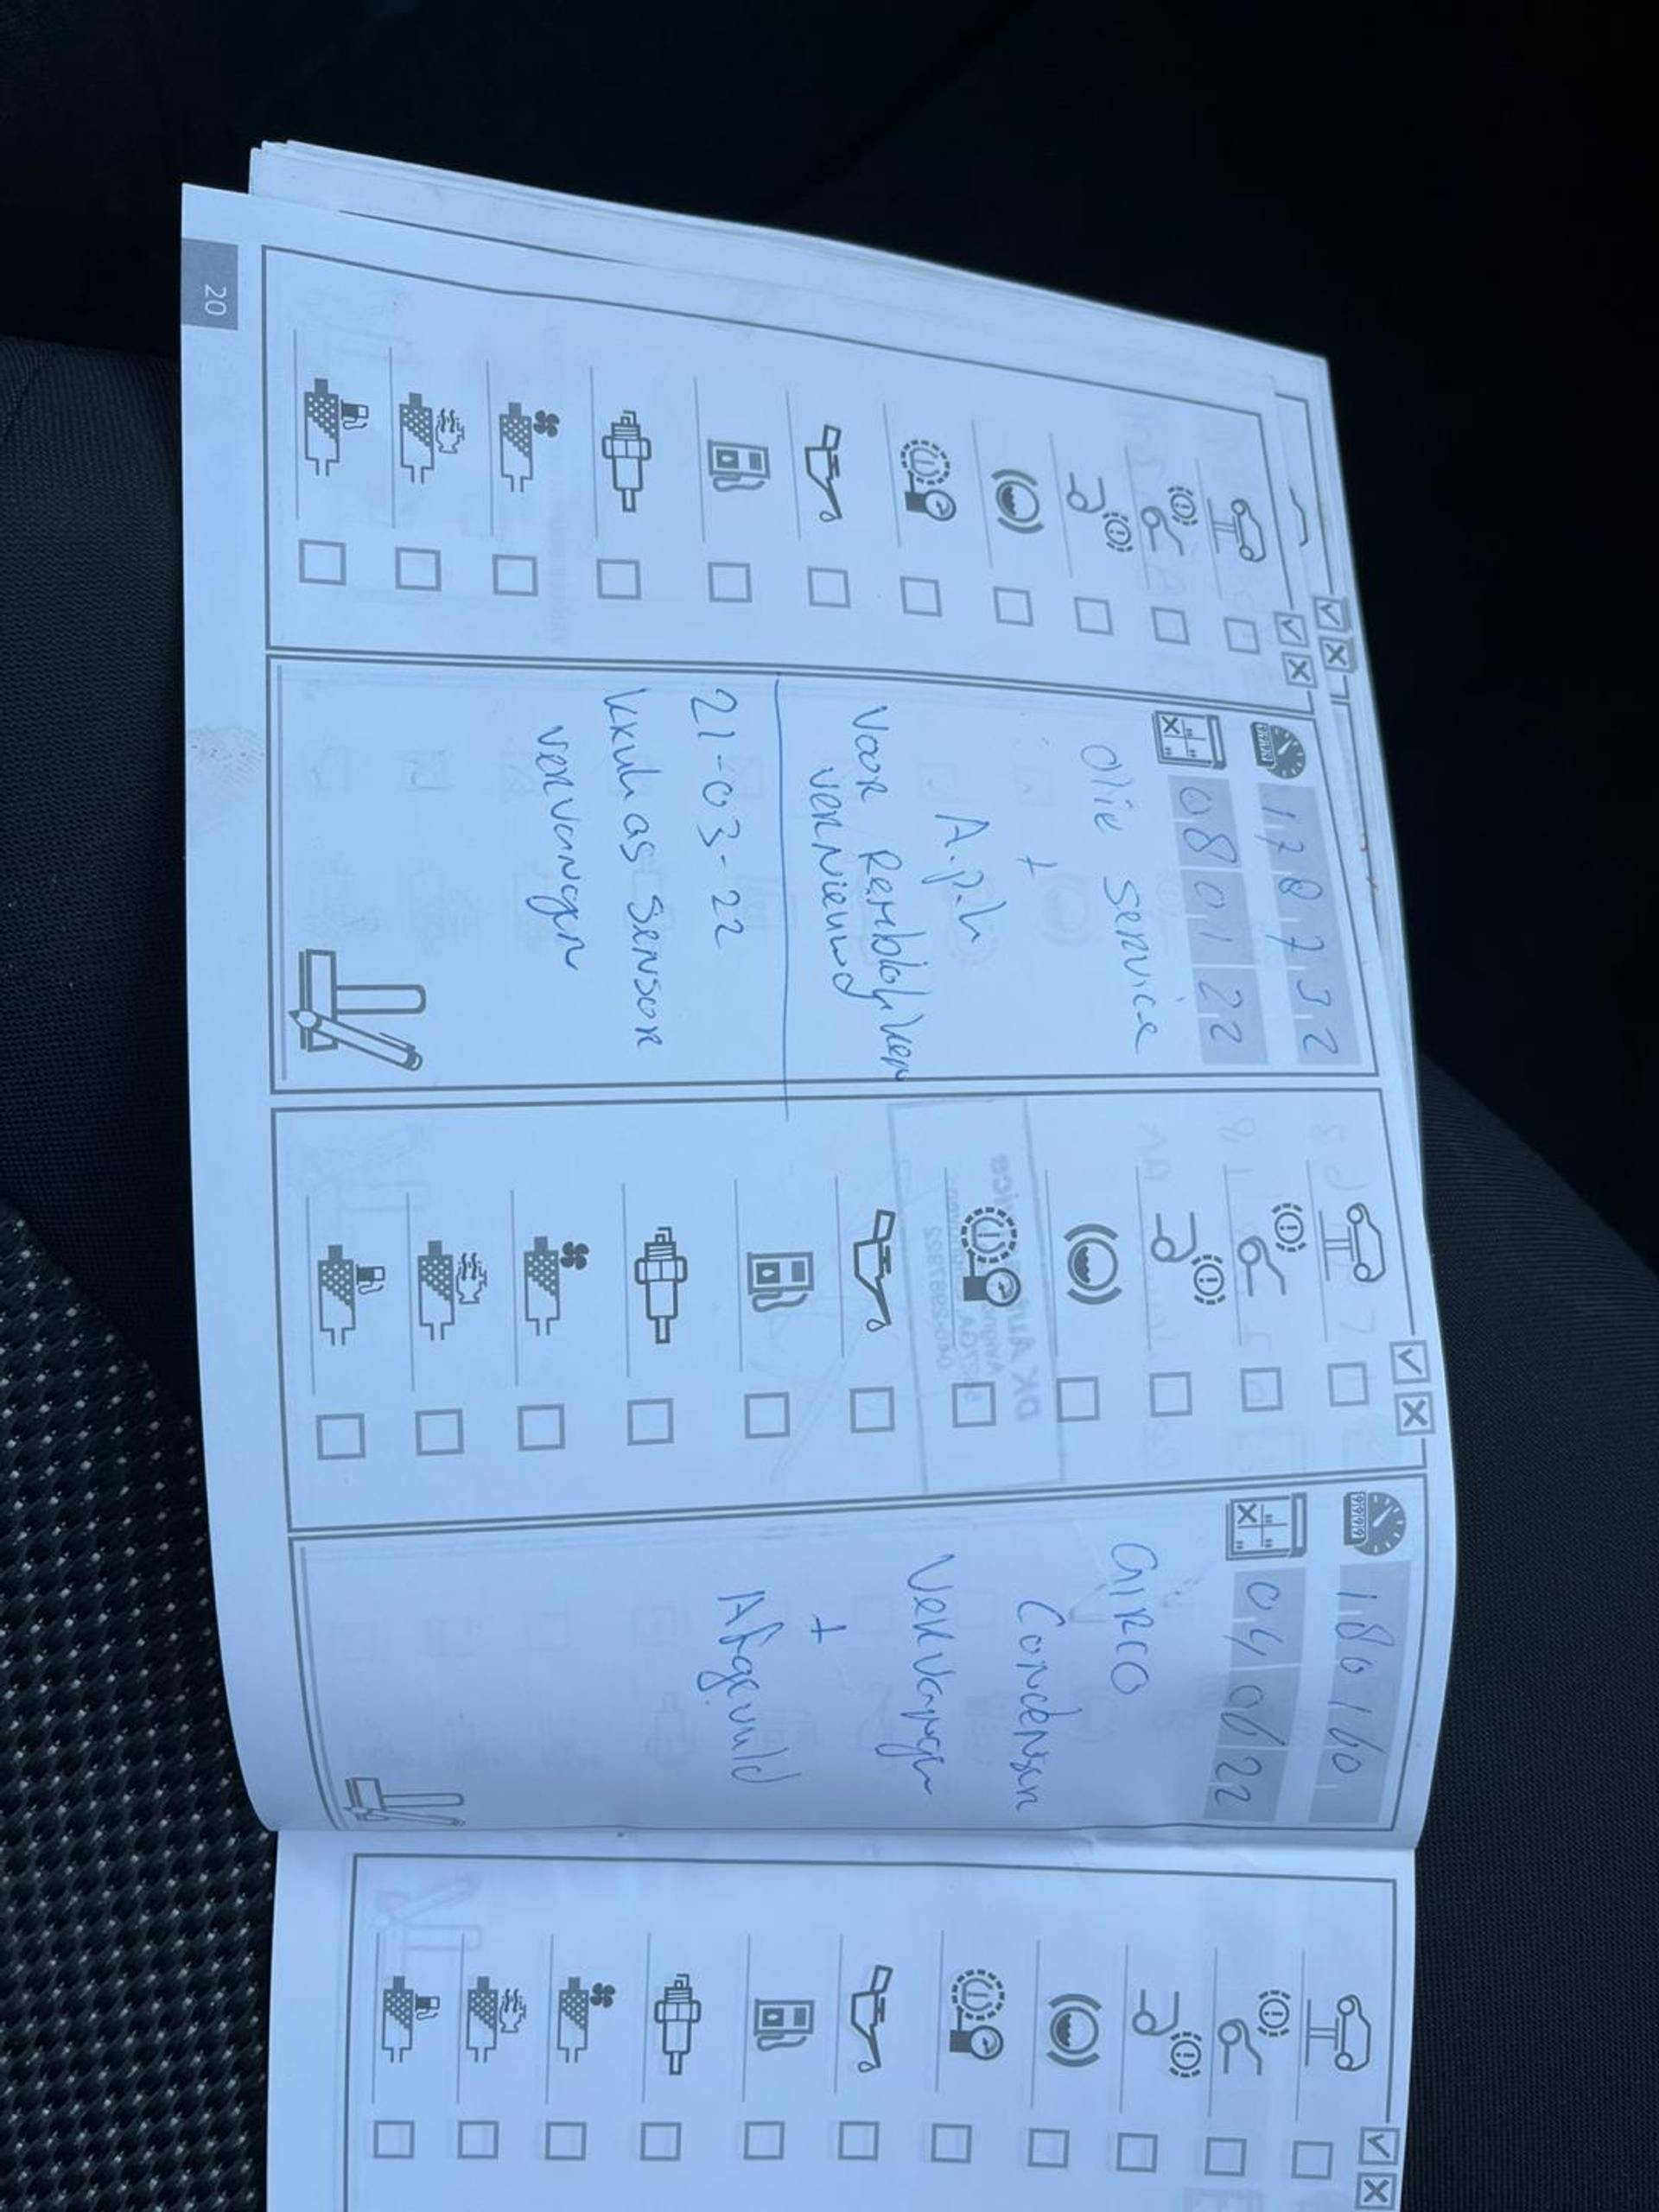 178732
080122
olie service
+
A.p.k
voor Remblokken
vernieuwd
21-03-22
krukas sensor
vervangen
180160
040622
airco
Condensor
vervangen
+
Afgevuld
20